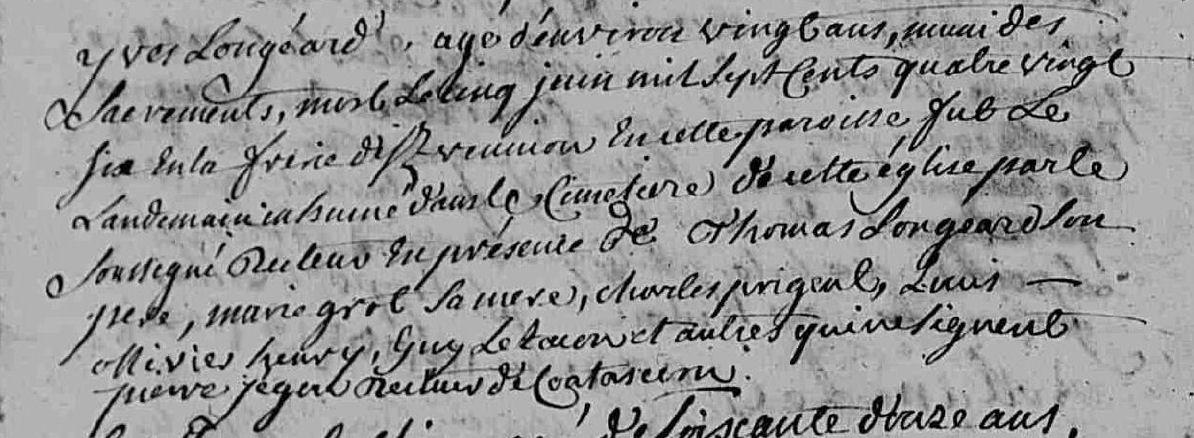 yves Longéard, agé d'environ vingt ans, muni des
Sacrements, mort Le cinq juin mil sept Cents quatre vingt
six En la frerie de st reunion En cette paroisse fut Le
Landemain inhumé dans le Cimetiere de cette église par le
soussigné Recteur En présence de Thomas Longeard son
pere, marie grot sa mere, charles prigent, Louis
ollivier henry, Guy Le et autres qui ne signent
pierre jegou Recteur de Coatascorn.
de soiscante douze ans,